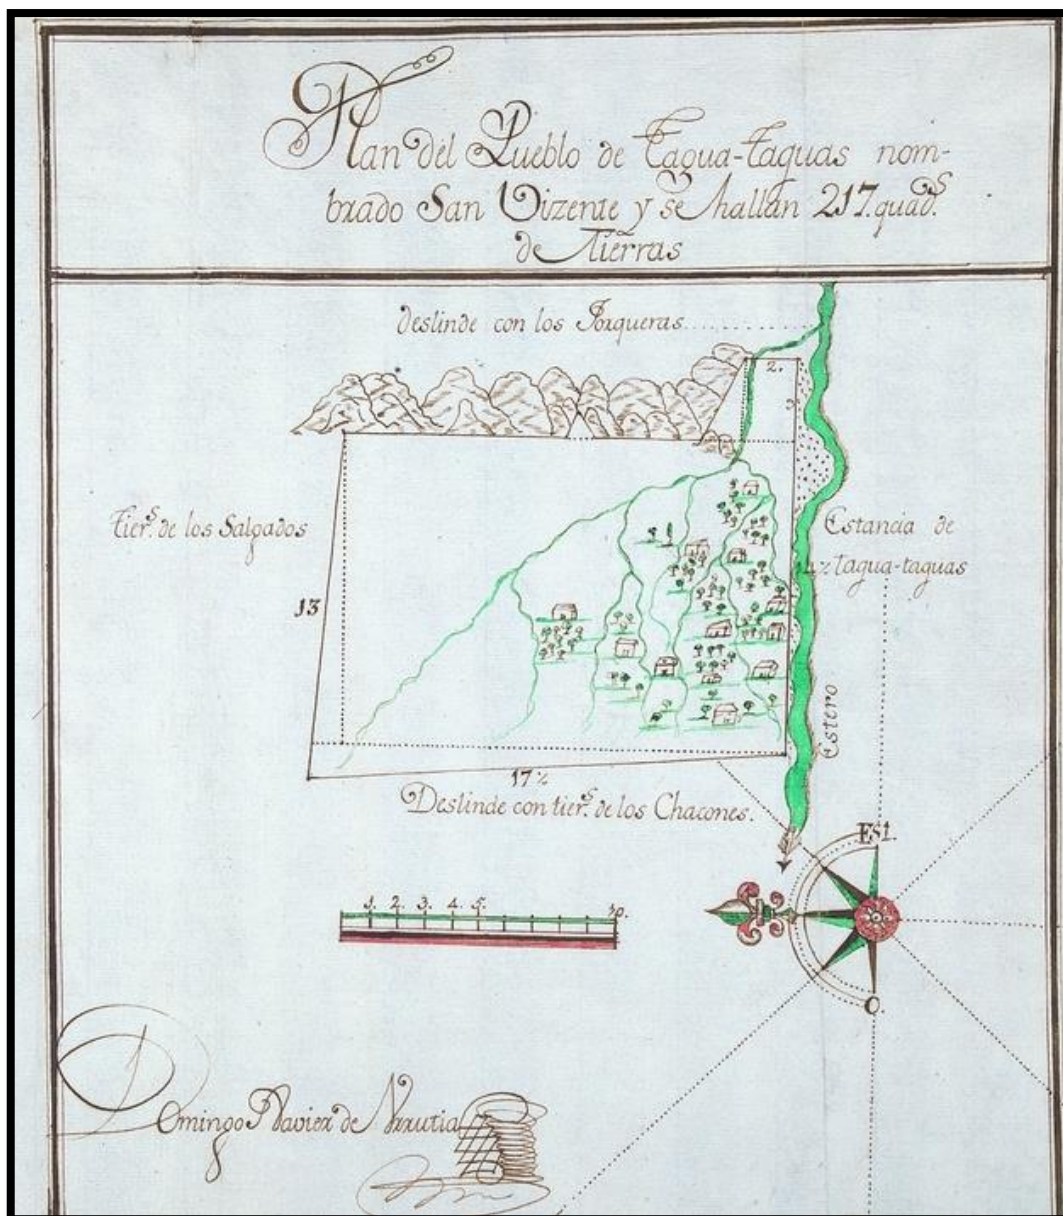 Plan del Pueblo de Tagua-taguas nom-
brado San Vizente y se hallan 217. quad.s
de Tierras
deslinde con los Jorqueras
2.
3
tier.s de los Salgados
Estancia de
tagua-taguas
13
Estero
17½
Deslinde con tier.s de los Chacones.
Est.
1. 2. 3. 4. 5. 10.
O.
Domingo Xavier de Urrutia